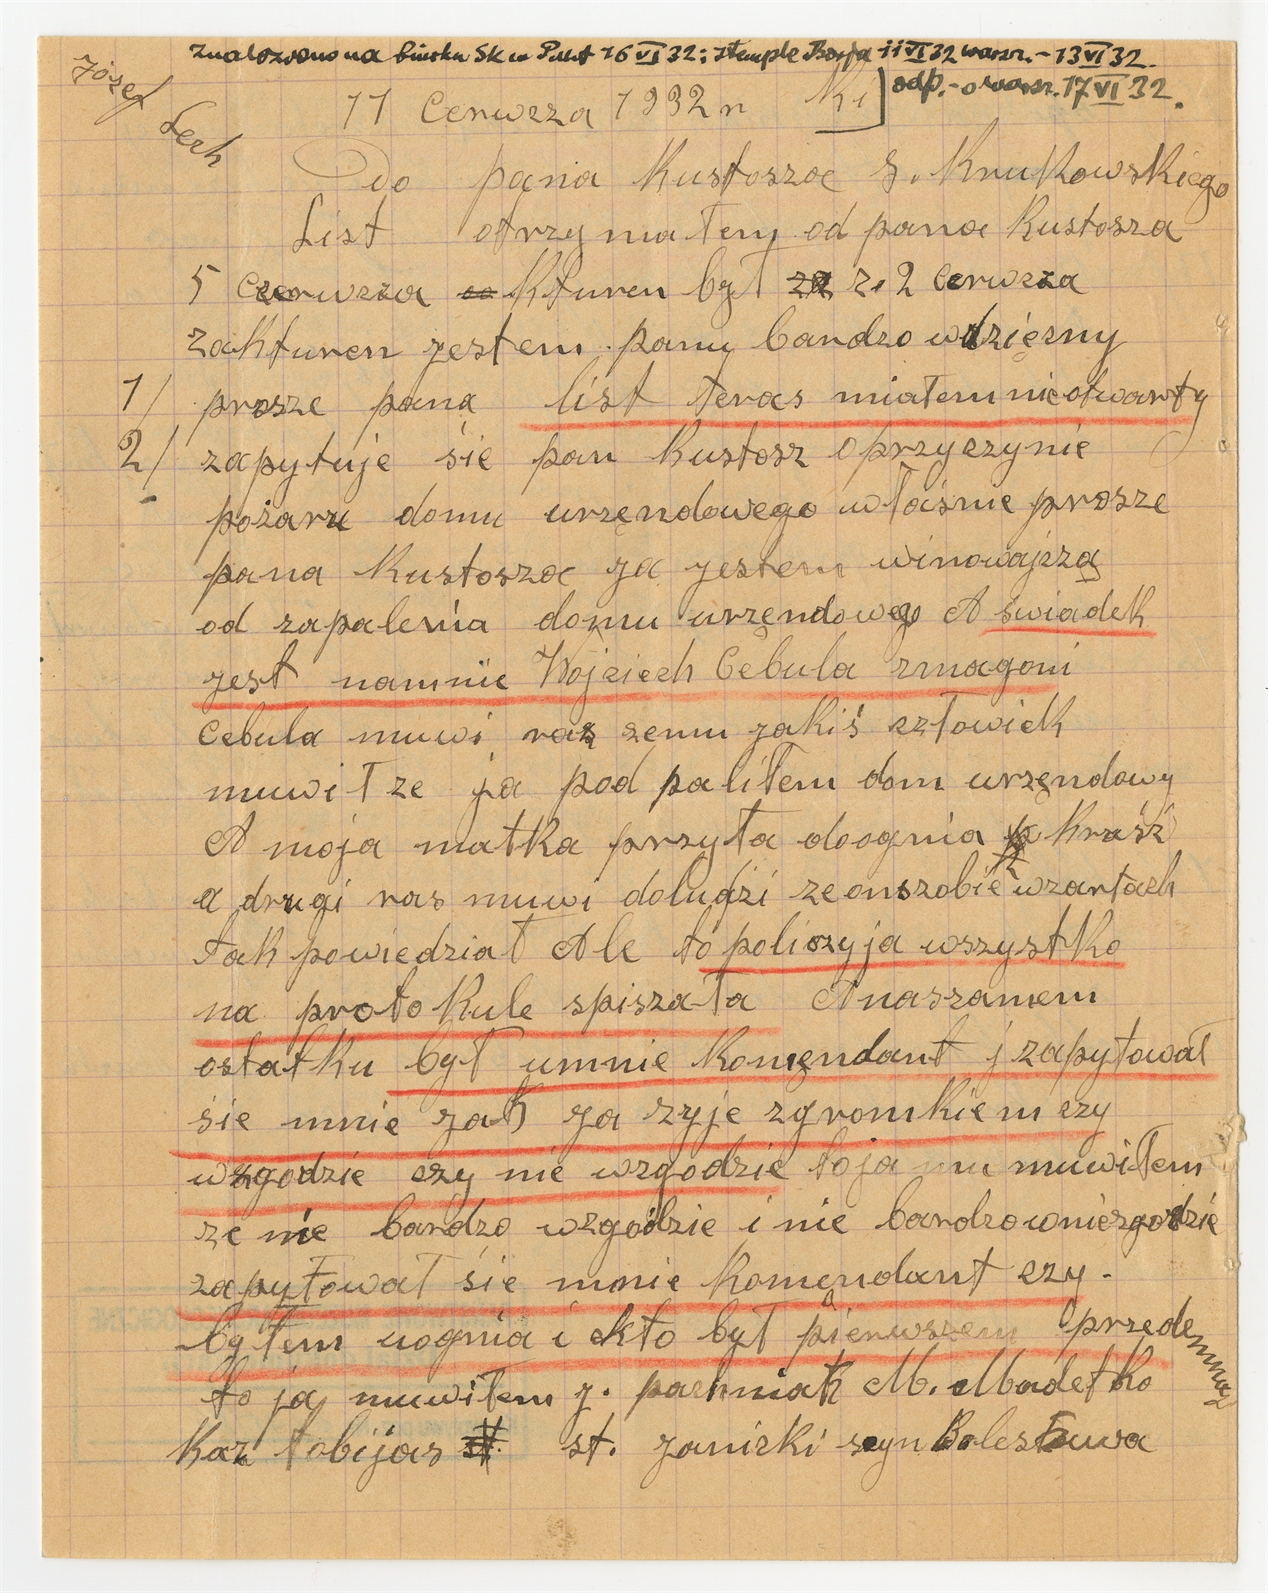 Znaleziono na biurku Sk w PMA 16 VI 32: stemple Borja 11 VI 32 warsz. - 13 VI 32.
odp. - o warsz. 17 VI 32.
Józef
Lech
11 Cerwcza 1932 r
Do pana Kustosza S. Krukowskiego
List otrzymałem od pana Kustosza
5 Czerwcza Kturen był z 2 Cerwcza
zakturen jestem panu bardzo wdzięzny
1/ prosze pana list teras miałem nieotwarty
2/ zapytuje śie pan Kustosz oprzyczynie
pożaru domu urzęndowego właśnie prosze
pana Kustosza ja jestem winowajzą
od zapaleńia domu urzęndoweg A swiadek
jest namnie Wojziech Cebula zmagoni
Cebula muwi raz zemu jakiś człowiek
muwił ze ja pod paliłem dom urzęndowy
A moja matka przyła doognia Kraśź
a drugi ras muwi doludźi zeonszobie wzartach
tak powiedział Ale to policzyja wszystko
na protokule spiszała Anaszamem
ostatku był umnie Komęndant j zapytował
śie mnie jak ja zyje zgromkiem czy
wzgodzie czy nie wzgodzie toja mu muwiłem
ze nie bardzo wzgodzie i nie bardzowniezgodzie
zapytował śie mnie Komendant czy.
byłem uognia i kto był pierwszem przedemnną
to ja muwiłem j. pachniak M. Madetko
Kaz tobijas st. janizki syn Bolesława